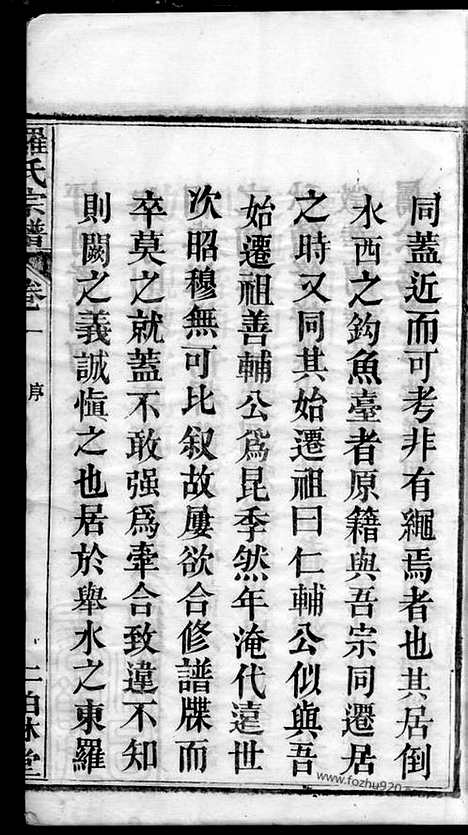 同蓋近而可考非有繩焉者也其居倒
水西之鈎魚臺者原籍與吾宗同遷居
之時又同其始遷祖曰仁輔公似與吾
始遷祖善輔公爲昆季然年淹代遠世
次昭穆無可比叙故屢欲合修譜牒而
卒莫之就蓋不敢强爲牽合致違不知
則闕之義誠愼之也居於舉水之東羅
羅氏宗譜
卷一
序
www.fozhu920.com